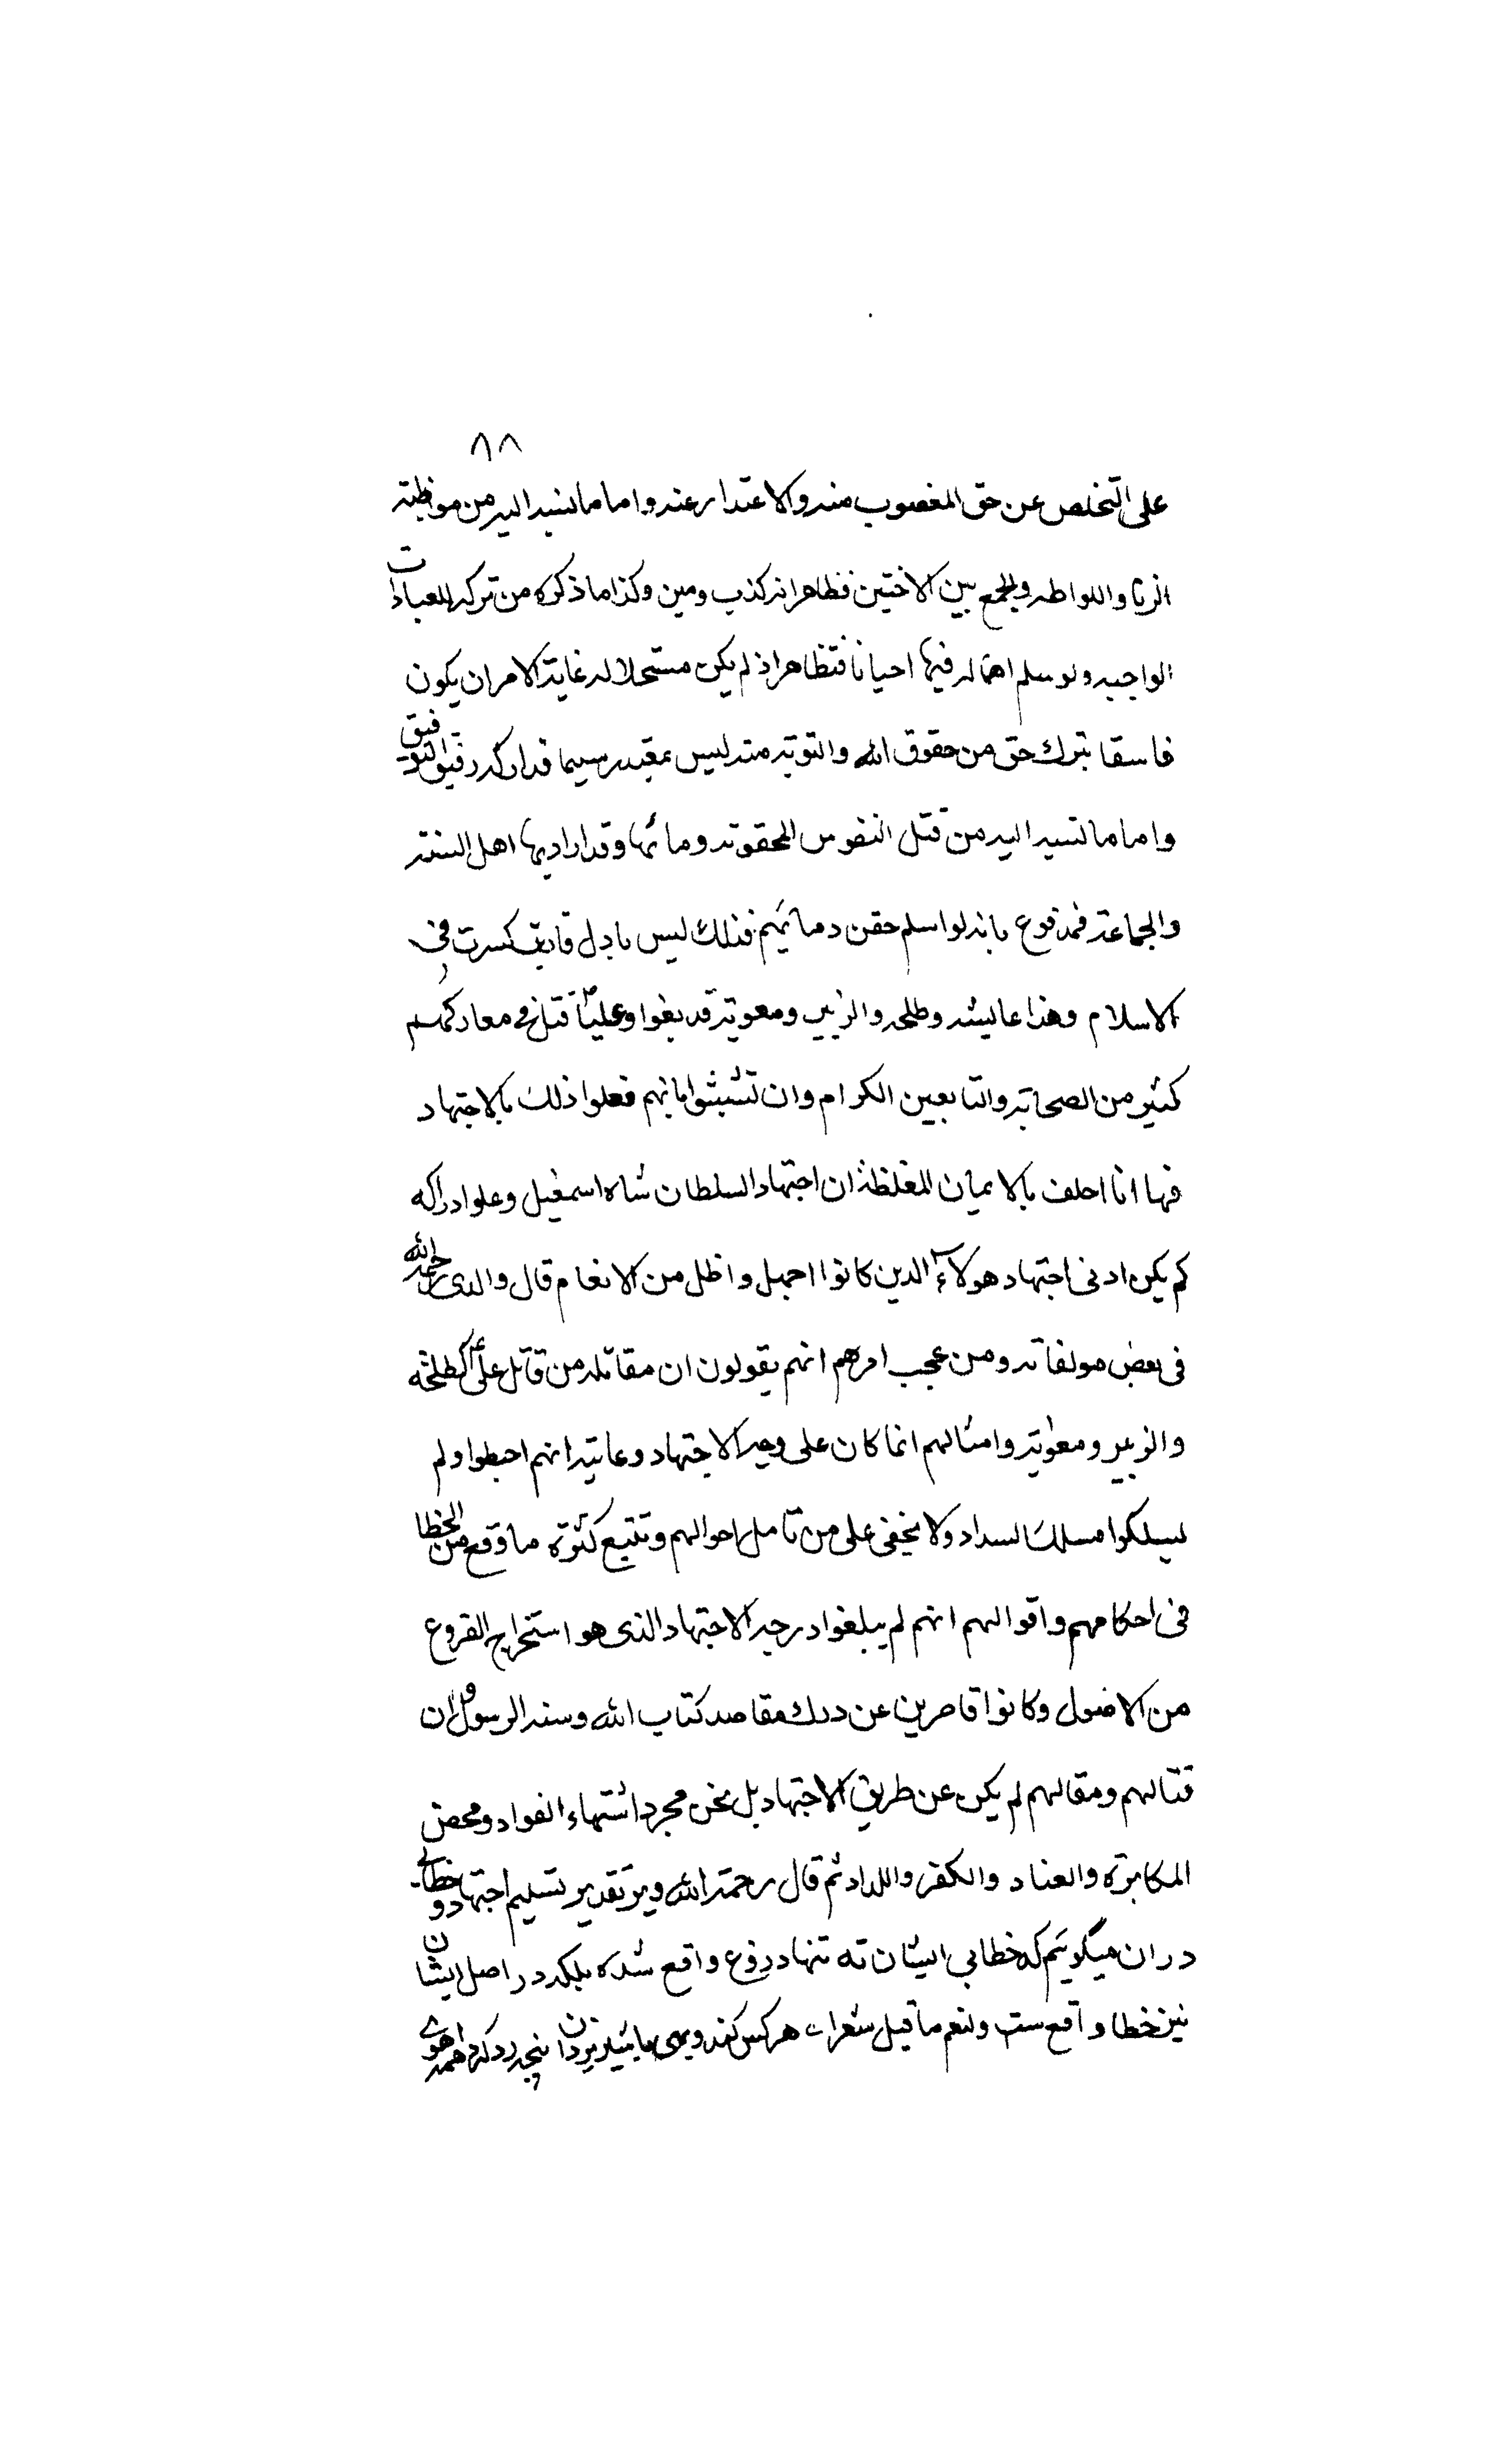 ٨٨
على التخلص عن حق المغصوب منه والاعتدار عنه واما ما نسبه اليه من مواظبته
الزنا واللواطه والجمع بين الاختين فظاهر انه كذب ومين وكذا ما ذكره من تركه للعبادات
الواجبه ولو سلم اهماله فيها احيانا فتظاهر اذ لم يكن مستحلا له غاية الامر ان يكون
فاسقا بترك حق من حقوق الله والتوبة منه ليس ببعيد سيما قد ادركه رفيق التوفيق
واما ما نسبه اليه من قتل النفوس المحقوته دمائها وقد اراد بها اهل السنة
والجماعة فمدفوع بانه لو اسلم حقن دمائهم فذلك ليس باول قارورة كسرت في
الاسلام وهذا عايشه وطلحه والزبير ومعوية قد بغوا وعليا قتل في معاركهم
كثير من الصحابة والتابعين الكرام وان تشبثوا بانهم فعلوا ذلك بالاجتهاد
فها انا احلف بالايمان المغلظة ان اجتهاد السلطان شاه اسمعيل وعلو ادراكه
لم يكن ادنى اجتهاد هولاء الدين كانوا اجهل واضل من الانعام قال والدى رحمه الله
فى بعض مولفاته ومن عجب امرهم انهم يقولون ان مقاتله من قاتل على كطلحة
والزبير ومعوية وامثالهم انما كان على وجه الاجتهاد وغايته انهم اخطوا ولم
يسلكوا مسلك السداد ولا يخفى على من تامل احوالهم وتتبع كثرة ما وقع من الخطا
فى احكامهم واقوالهم انهم لم يبلغوا درجه الاجتهاد الذى هو استخراج الفروع
من الاصول وكانوا قاصرين عن درك مقاصد كتاب الله وسنه الرسول وان
قتالهم ومقالهم لم يكن عن طريق الاجتهاد بل عن مجرد اشتهاء الفواد ومحض
المكابرة والعناد والكفر واللداد ثم قال رحمة الله وبر تقدير تسليم اجتهاد و خطاى
در ان ميگوييم كه خطابى ايشان نه تنها در فروع واقع شده بلكه در اصل ايشان
نيز خطا واقع ست ولنعم ما قيل شعرا هركس كند